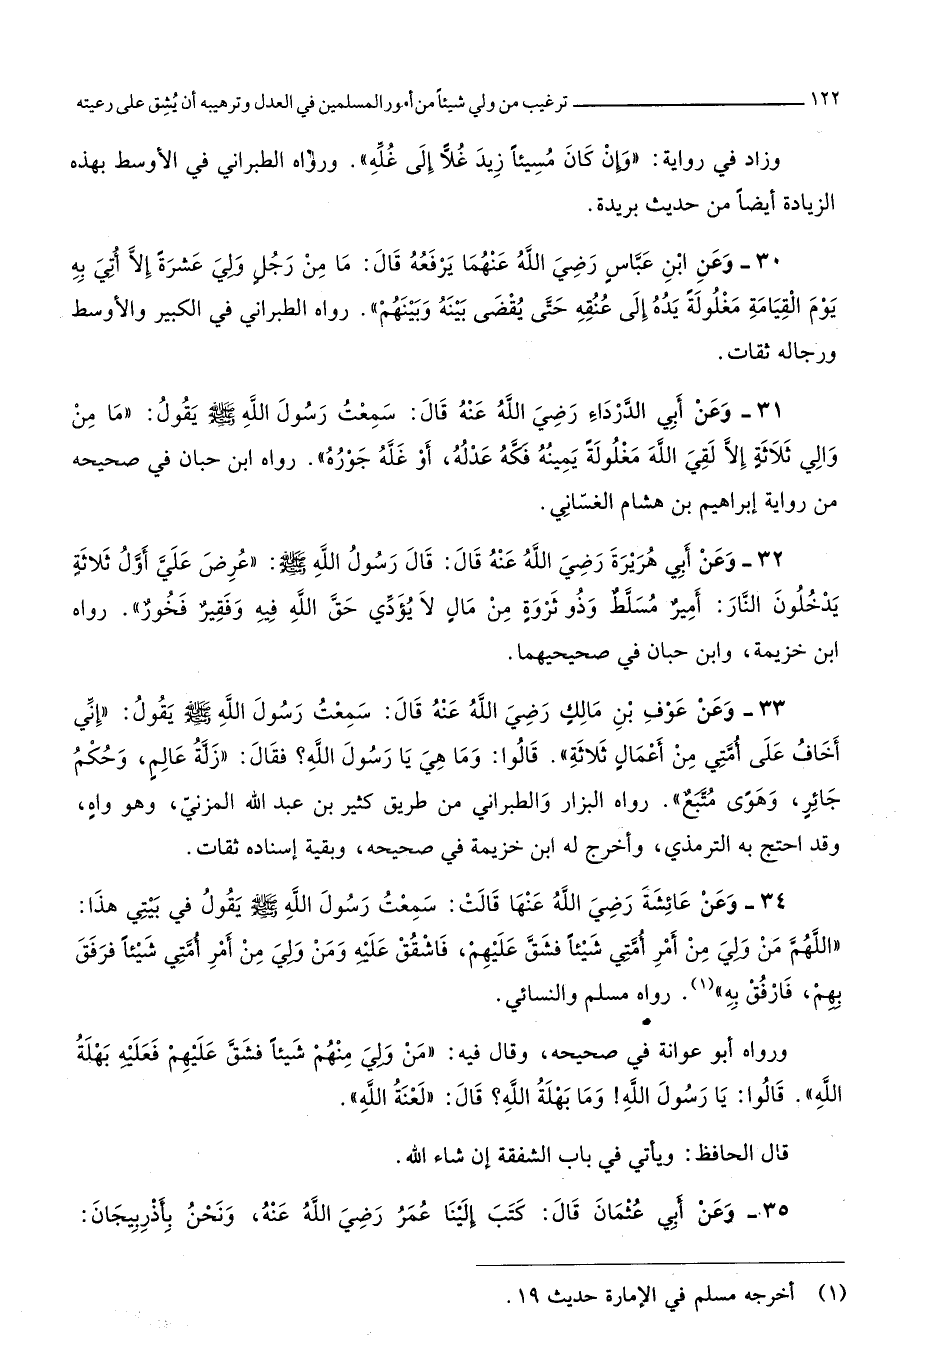 ١٢٢ ــــــــــــــــــــ ترغيب من ولي شيئاً من أمور المسلمين في العدل وترهيبه أن يُشِق على رعيته
وزاد في رواية: «وَإِنْ كَانَ مُسِيئاً زِيدَ غُلاًّ إِلَى غُلِّهِ». ورواه الطبراني في الأوسط بهذه
الزيادة أيضاً من حديث بريدة.
٣٠ ـ وَعَنِ ابْنِ عَبَّاسٍ رَضِيَ اللَّهُ عَنْهُمَا يَرْفَعُهُ قَالَ: مَا مِنْ رَجُلٍ وَلِيَ عَشرَةً إِلاَّ أُتِيَ بِهِ
يَوْمَ الْقِيَامَةِ مَغْلُولَةً يَدُهُ إِلَى عُنُقِهِ حَتَّى يُقْضَى بَيْنَهُ وَبَيْنَهُمْ». رواه الطبراني في الكبير والأوسط
ورجاله ثقات.
٣١ ـ وَعَنْ أَبِي الدَّرْدَاءِ رَضِيَ اللَّهُ عَنْهُ قَالَ: سَمِعْتُ رَسُولَ اللَّهِ ﷺ يَقُولُ: «مَا مِنْ
وَالِي ثَلَاثَةٍ إِلاَّ لَقِيَ اللَّهَ مَغْلُولَةً يَمِينُهُ فَكَّهُ عَدْلُهُ، أَوْ غَلَّهُ جَوْرُهُ». رواه ابن حبان في صحيحه
من رواية إبراهيم بن هشام الغسّانِي.
٣٢ ـ وَعَنْ أَبِي هُرَيْرَةَ رَضِيَ اللَّهُ عَنْهُ قَالَ: قَالَ رَسُولُ اللَّهِ ﷺ: «عُرِضَ عَلَيَّ أَوَّلُ ثَلاثَةٍ
يَدْخُلُونَ النَّارَ: أَمِيرٌ مُسَلَّطٌ وَذُو ثَرْوَةٍ مِنْ مَالٍ لاَ يُؤَدِّي حَقَّ اللَّهِ فِيهِ وَفَقِيرٌ فَخُورٌ». رواه
ابن خزيمة، وابن حبان في صحيحيهما.
٣٣ ـ وَعَنْ عَوْفِ بْنِ مَالِكٍ رَضِيَ اللَّهُ عَنْهُ قَالَ: سَمِعْتُ رَسُولَ اللَّهِ ﷺ يَقُولُ: «إِنِّي
أَخَافُ عَلَى أُمَّتِي مِنْ أَعْمَالٍ ثَلَاثَةٍ». قَالُوا: وَمَا هِيَ يَا رَسُولَ اللَّهِ؟ فقَالَ: «زَلَّةُ عَالِمٍ، وَحُكْمُ
جَائِرٍ، وَهَوًى مُتَّبَعٌ». رواه البزار وَالطبراني من طريق كثير بن عبد الله المزنيّ، وهو واهٍ،
وقد احتج به الترمذي، وأخرج له ابن خزيمة في صحيحه، وبقية إسناده ثقات.
٣٤ ـ وَعَنْ عَائِشَةَ رَضِيَ اللَّهُ عَنْهَا قَالَتْ: سَمِعْتُ رَسُولَ اللَّهِ ﷺ يَقُولُ في بَيْتِي هذَا:
«اللَّهُمَّ مَنْ وَلِيَ مِنْ أَمْرِ أُمَّتِي شَيْئاً فَشَقَّ عَلَيْهِمْ، فَاشْقُقْ عَلَيْهِ وَمَنْ وَلِيَ مِنْ أَمْرِ أُمَّتِي شَيْئاً فرَفَقَ
بِهِمْ، فَارْفُقْ بِهِ»(١). رواه مسلم والنسائي.
ورواه أبو عوانة في صحيحه، وقال فيه: «مَنْ وَلِيَ مِنْهُمْ شَيْئاً فشَقَّ عَلَيْهِمْ فَعَلَيْهِ بَهْلَةُ
اللَّهِ». قَالُوا: يَا رَسُولَ اللَّهِ! وَمَا بَهْلَةُ اللَّهِ؟ قَالَ: «لَعْنَةُ اللَّهِ».
قال الحافظ: ويأتي في باب الشفقة إن شاء الله.
٣٥ ـ وَعَنْ أَبِي عُثْمَانَ قَالَ: كَتَبَ إِلَيْنَا عُمَرُ رَضِيَ اللَّهُ عَنْهُ، وَنَحْنُ بِأَذْرِبِيجَانَ:
(١) أخرجه مسلم في الإمارة حديث ١٩.